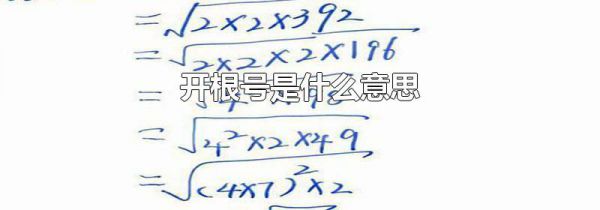 =√2×2×392
=√2×2×2×196
开根号是什么意思
=√4
=√4²×2×49
=√(4×7)²×2